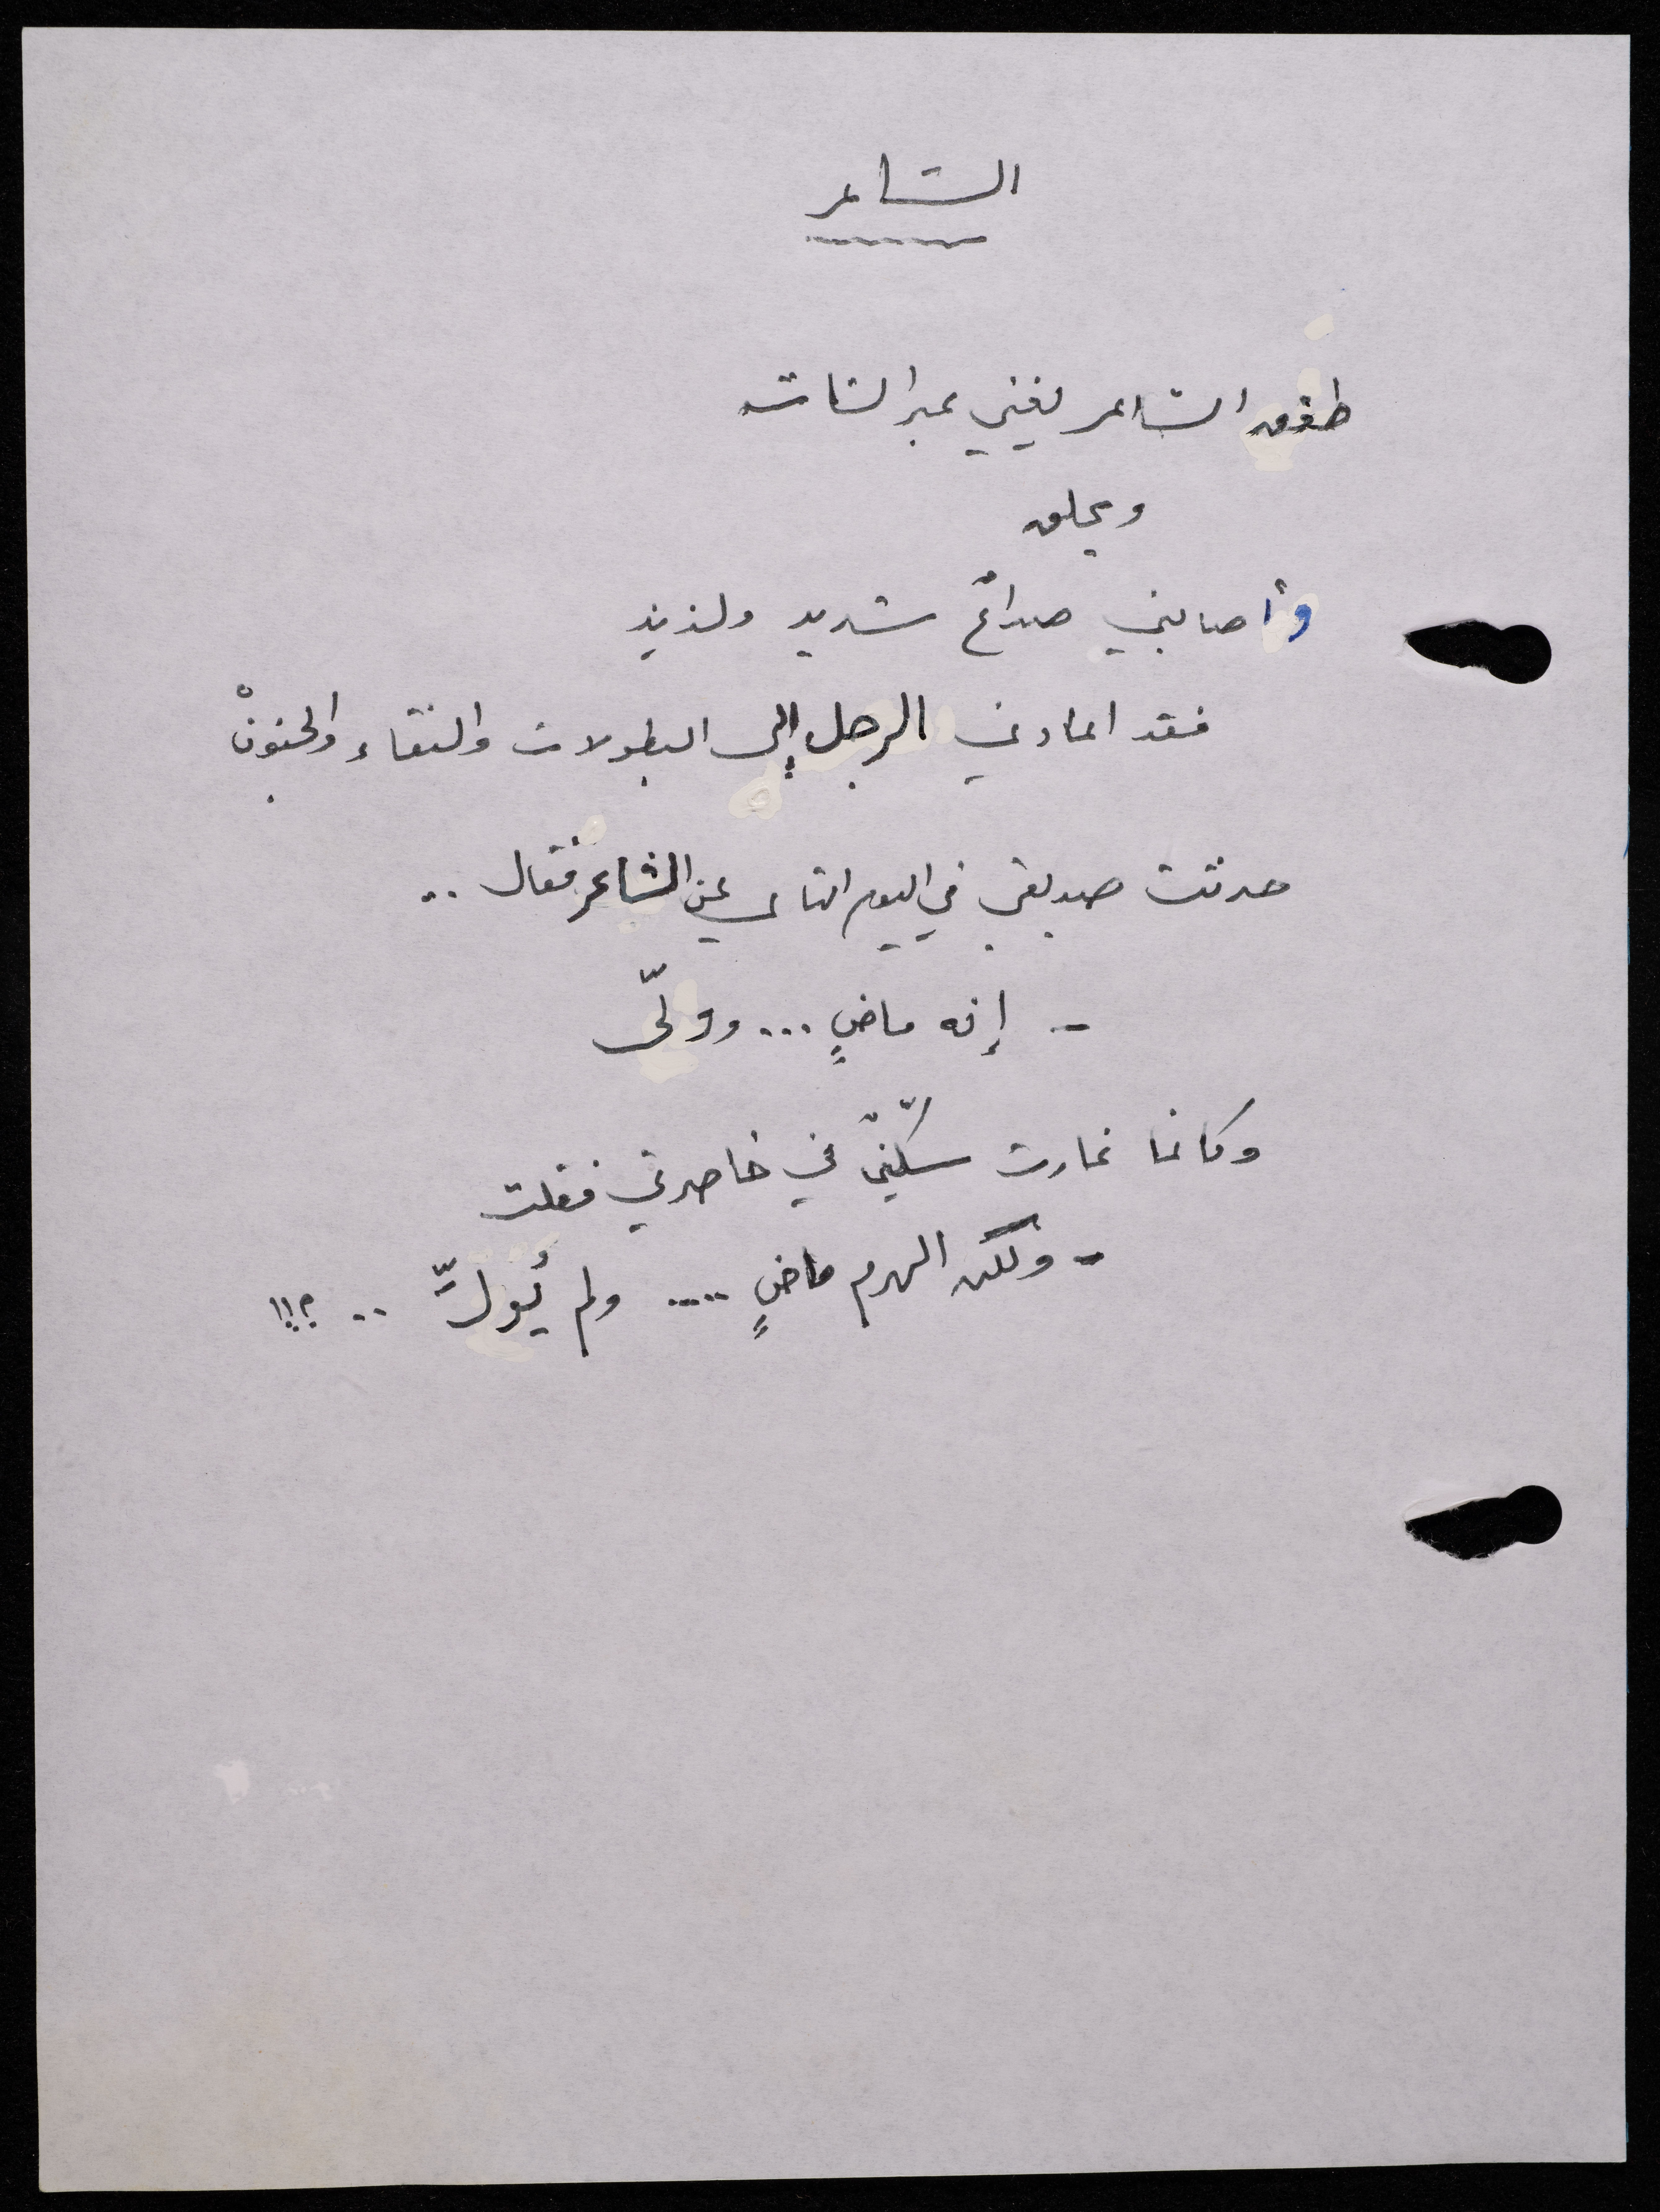 الشاعر
طفق الشاعر يغني عبر الشاشة
ويحلق
وأصابني صداعٌ شديد ولذيذ
فقد اعادني الرجل إلى البطولات والنقاء والجنونْ
حدثت صديقي في اليوم التالي عن الشاعر فقال ..
- إنه ماضٍ ... وولّى
وكانما غارت سكّينٌ في خاصرتي فقلت
- ولكن الهرم ماضٍ .... ولم يُولِّ .. ؟!!